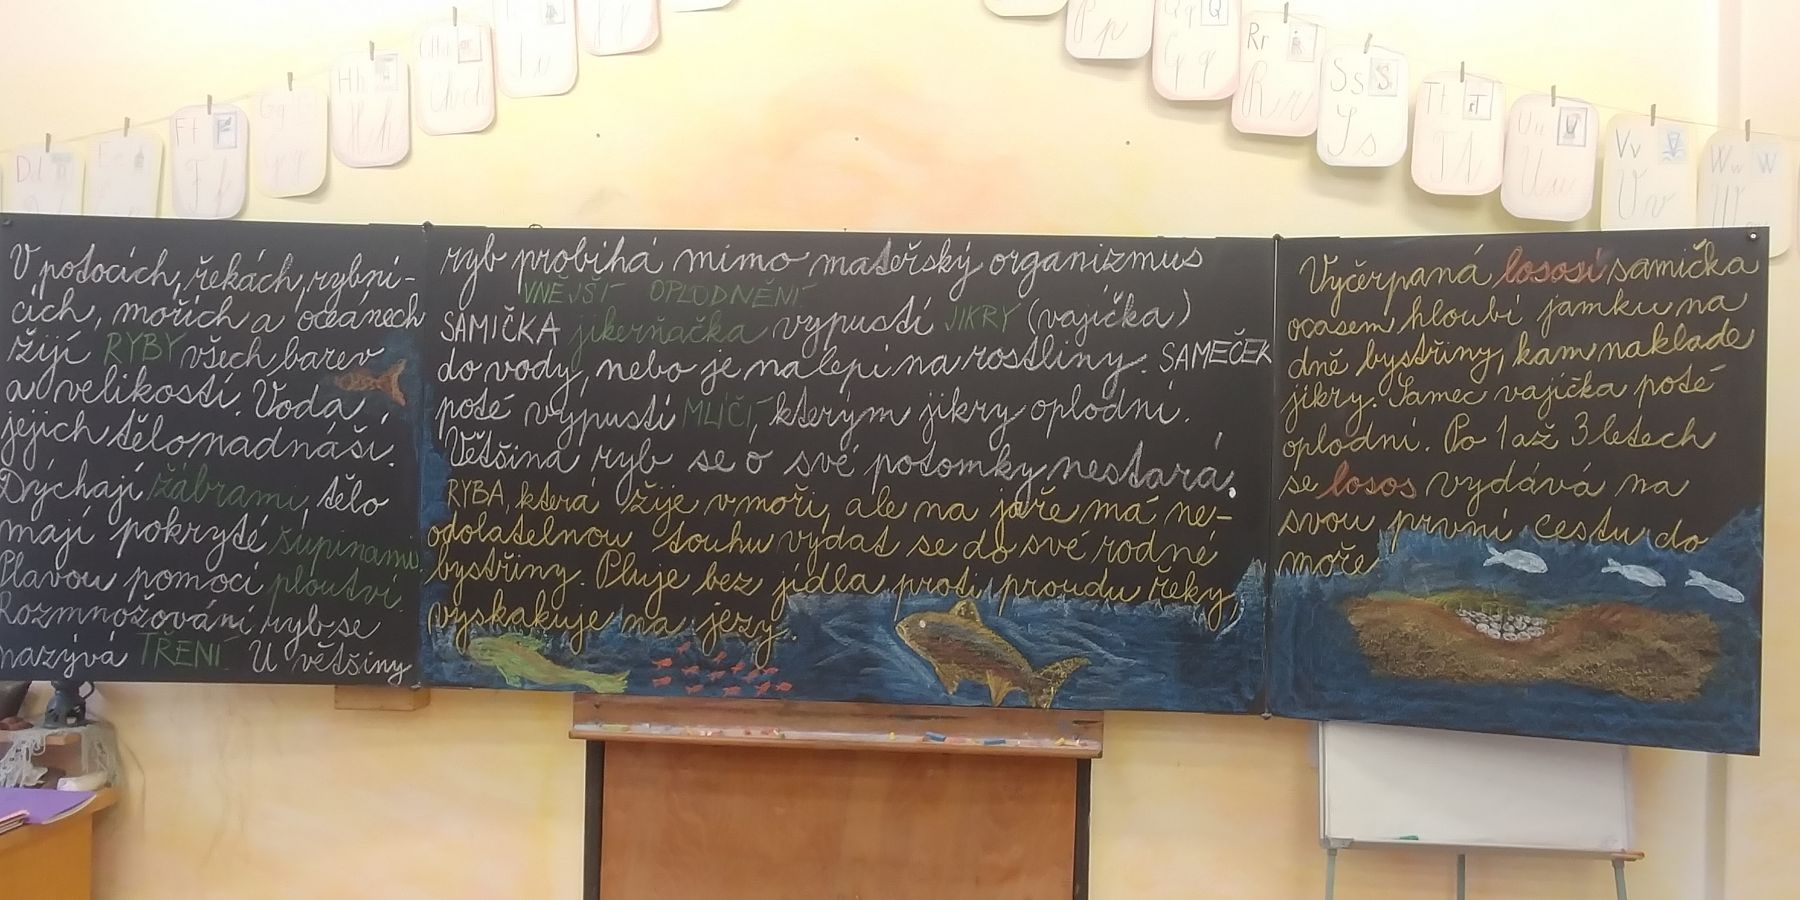 V potocích, řekách, rybní-
cích, mořích a oceánech
žijí RYBY všech barev
a velikostí. Voda
jejich tělo nadnáší.
Dýchají žábrami, tělo
mají pokryté šupinami.
Plavou pomocí ploutví.
Rozmnožování ryb se
nazývá TŘENÍ U většiny
ryb probíhá mimo mateřský organizmus
VNĚJŠÍ OPLODNĚNÍ
SAMIČKA jikerňačka vypustí JIKRY (vajíčka)
do vody, nebo je nalepí na rostliny. SAMEČEK
poté vypustí MLÍČÍ, kterým jikry oplodní.
Většina ryb se o své potomky nestará.
RYBA, která žije v moři, ale na jaře má ne-
odolatelnou touhu vydat se do své rodné
bystřiny. Pluje bez jídla proti proudu řeky,
vyskakuje na jezy.
Vyčerpaná lososí samička
ocasem hloubí jamku na
dně bystřiny, kam naklade
jikry. Samec vajíčka poté
oplodní. Po 1 až 3 letech
se losos vydává na
svou první cestu do
moře
Dd
Ee
Ft F
Gg G
Hh
Pp
Qq Q
Rr R
Rr
Ss S
Ss
Tt T
Tt
Uu U
Uu
Vv V
Vv
Ww W